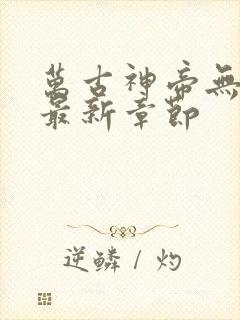 萬古神帝無
最新章節
逆鱗 / 灼